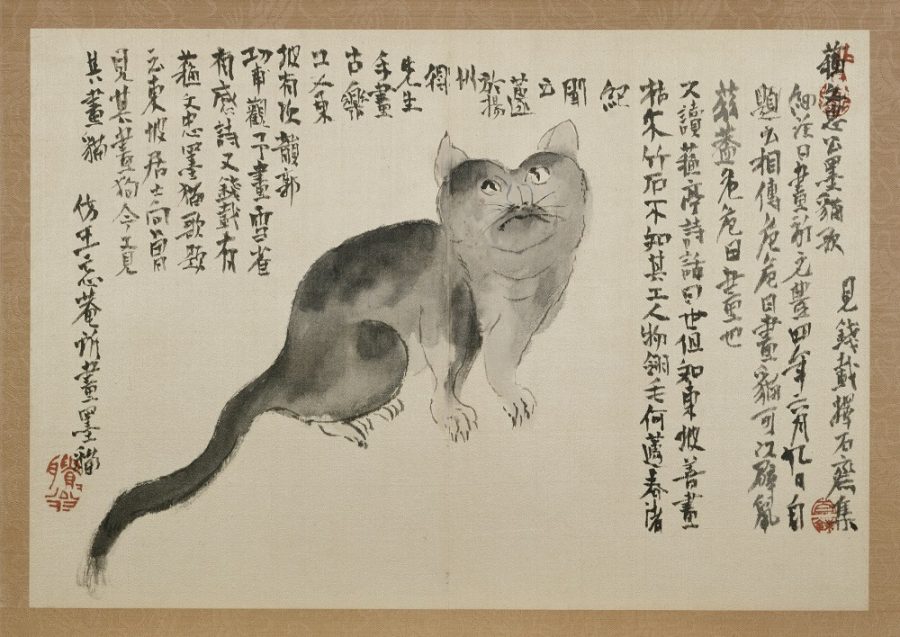 蘇文忠公墨貓歌 見錢載擇石齋集
細注曰畫於元豐四年六月九日自
題公相傳危危日畫貓可以辟鼠
茲蓋危危日畫也
又讀蘇亭詩話曰世但知東坡善畫
枯木竹石不知其工人物翎毛何薳春渚
紀
聞
云
薳
於揚
州
得
先生
手畫
古樂
工又東
坡有次韻郭
功甫觀予畫雪雀
有感詩又錢載有
蘇文忠墨貓歌題
云東坡居士向曾
見其畫狗今又見
其畫貓 仿王忘菴所畫墨貓